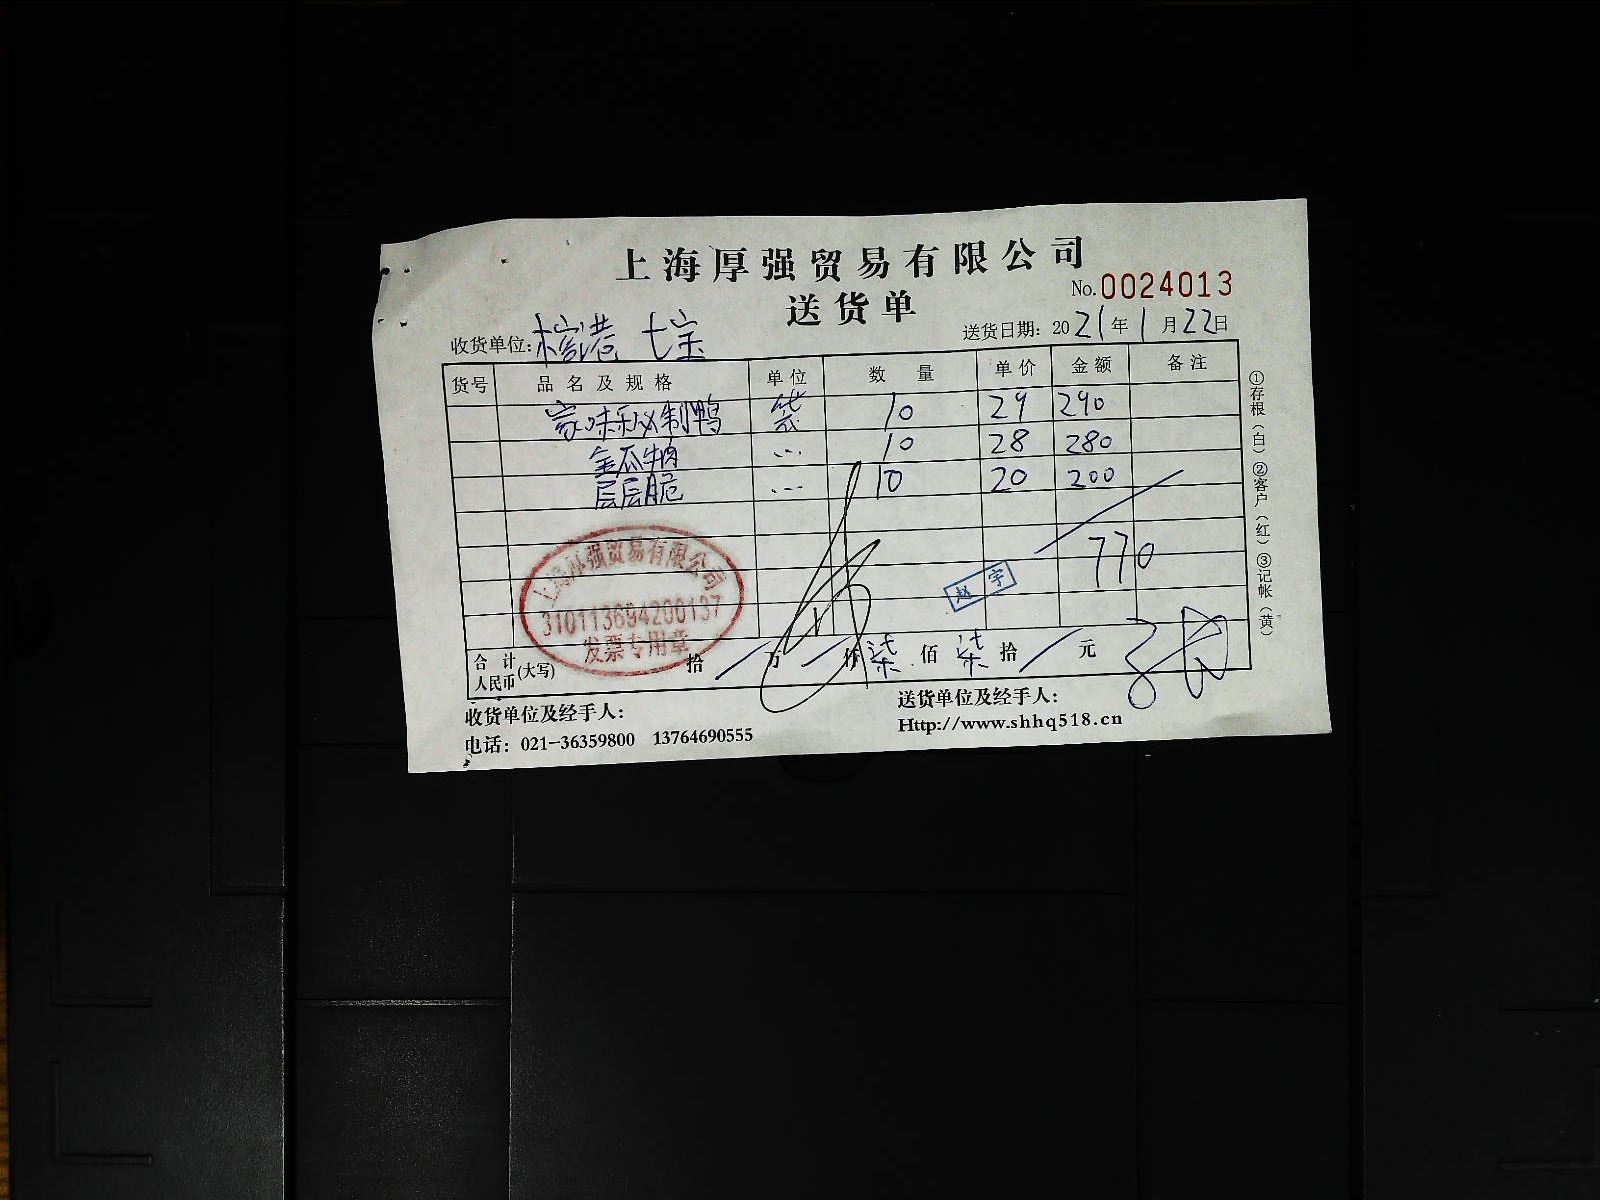 上海厚强贸易有限公司
送货单
No.0024013
收货单位: 七宝
送货日期: 2021年1月22日
货号 品名及规格 单位 数量 单价 金额 备注
家味秘制鸭 袋 10 29 290
金瓜牛肉 … 10 28 280
层层脆 … 10 20 200
770
赵宇
上海厚强贸易有限公司
310113694200137
发票专用章
合计人民币(大写) 拾 / 万 / 仟 柒 佰 柒 拾 / 元
收货单位及经手人:
送货单位及经手人:
电话: 021-36359800 13764690555
Http://www.shhq518.cn
①存根(白)②客户(红)③记帐(黄)